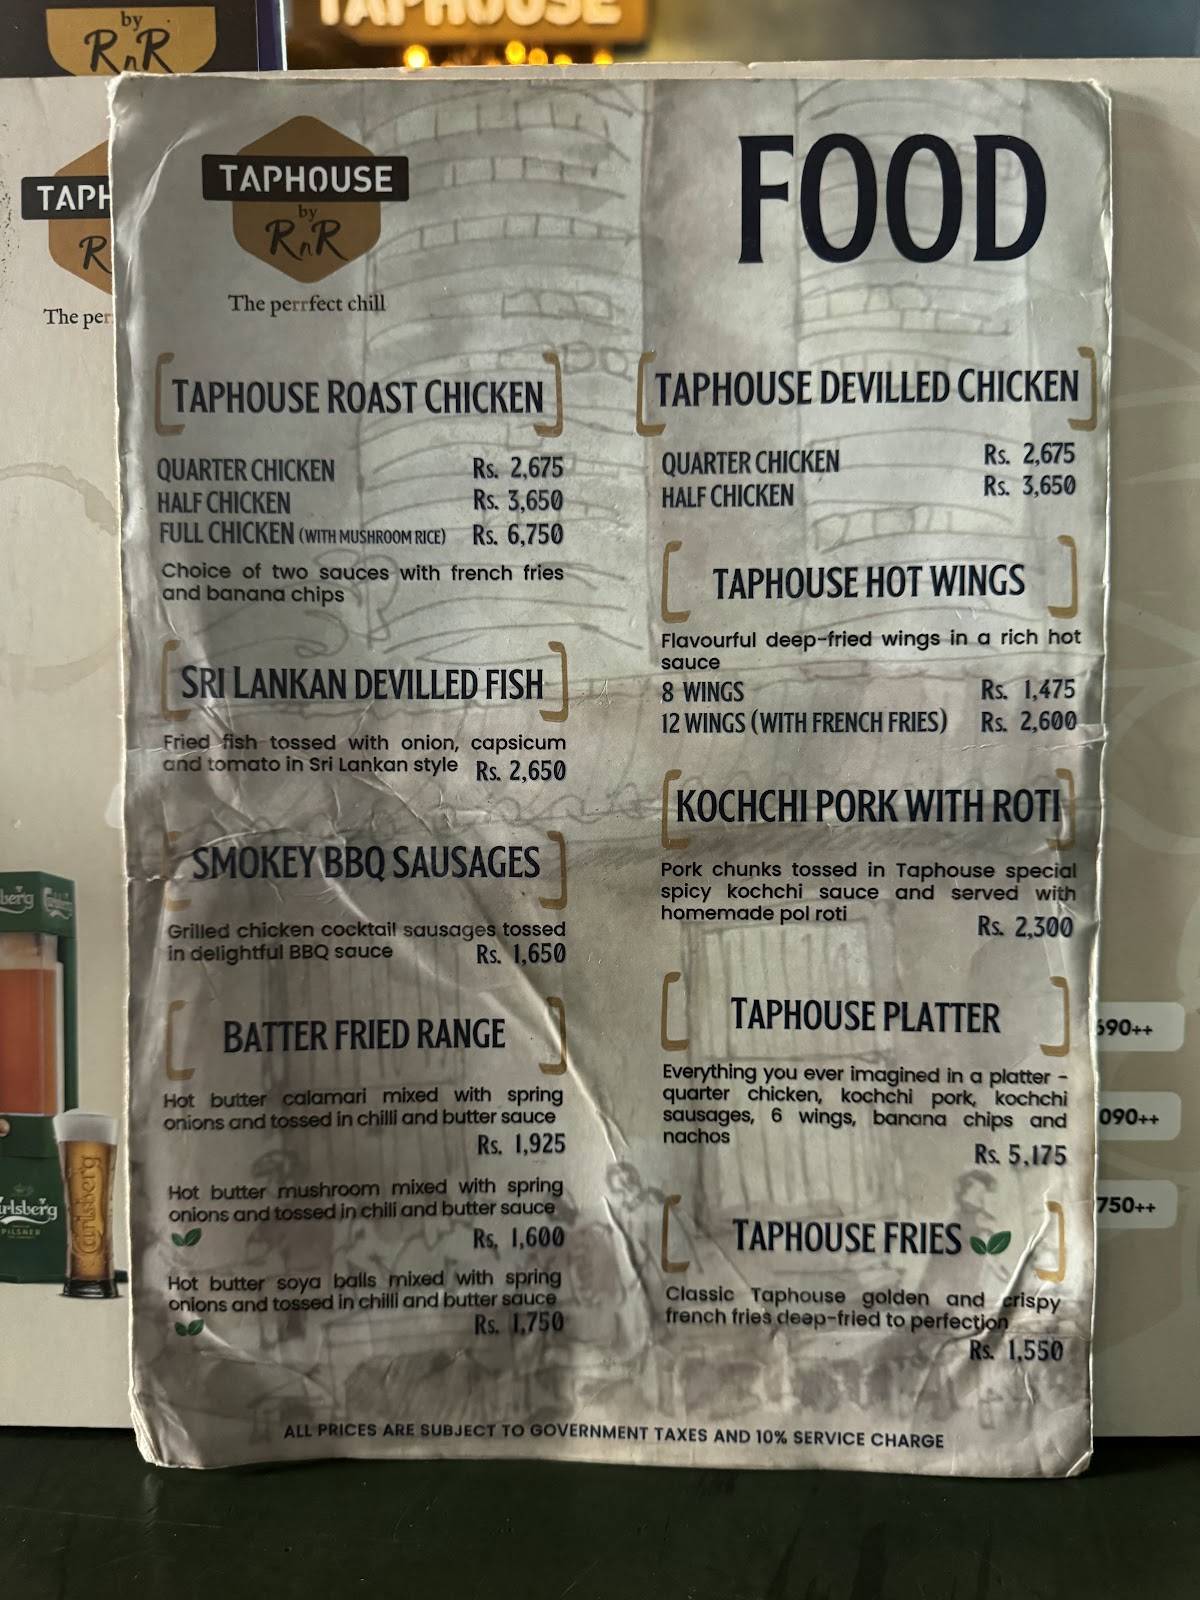 by
RnR
TAPHOUSE
TAPHOUSE
by
RnR
The perrfect chill
FOOD
TAPH
R
The per
TAPHOUSE ROAST CHICKEN
QUARTER CHICKEN Rs. 2,675
HALF CHICKEN Rs. 3,650
FULL CHICKEN (WITH MUSHROOM RICE) Rs. 6,750
Choice of two sauces with french fries
and banana chips
SRI LANKAN DEVILLED FISH
Fried fish tossed with onion, capsicum
and tomato in Sri Lankan style Rs. 2,650
SMOKEY BBQ SAUSAGES
Grilled chicken cocktail sausages tossed
in delightful BBQ sauce Rs. 1,650
BATTER FRIED RANGE
Hot butter calamari mixed with spring
onions and tossed in chilli and butter sauce
Rs. 1,925
Hot butter mushroom mixed with spring
onions and tossed in chili and butter sauce
Rs. 1,600
Hot butter soya balls mixed with spring
onions and tossed in chilli and butter sauce
Rs. 1,750
TAPHOUSE DEVILLED CHICKEN
QUARTER CHICKEN Rs. 2,675
HALF CHICKEN Rs. 3,650
TAPHOUSE HOT WINGS
Flavourful deep-fried wings in a rich hot
sauce
8 WINGS Rs. 1,475
12 WINGS (WITH FRENCH FRIES) Rs. 2,600
KOCHCHI PORK WITH ROTI
Pork chunks tossed in Taphouse special
spicy kochchi sauce and served with
homemade pol roti
Rs. 2,300
TAPHOUSE PLATTER
Everything you ever imagined in a platter -
quarter chicken, kochchi pork, kochchi
sausages, 6 wings, banana chips and
nachos
Rs. 5,175
TAPHOUSE FRIES
Classic Taphouse golden and crispy
french fries deep-fried to perfection
Rs. 1,550
ALL PRICES ARE SUBJECT TO GOVERNMENT TAXES AND 10% SERVICE CHARGE
berg
Carlsberg
Carlsberg
arlsberg
PILSNER
690++
090++
750++